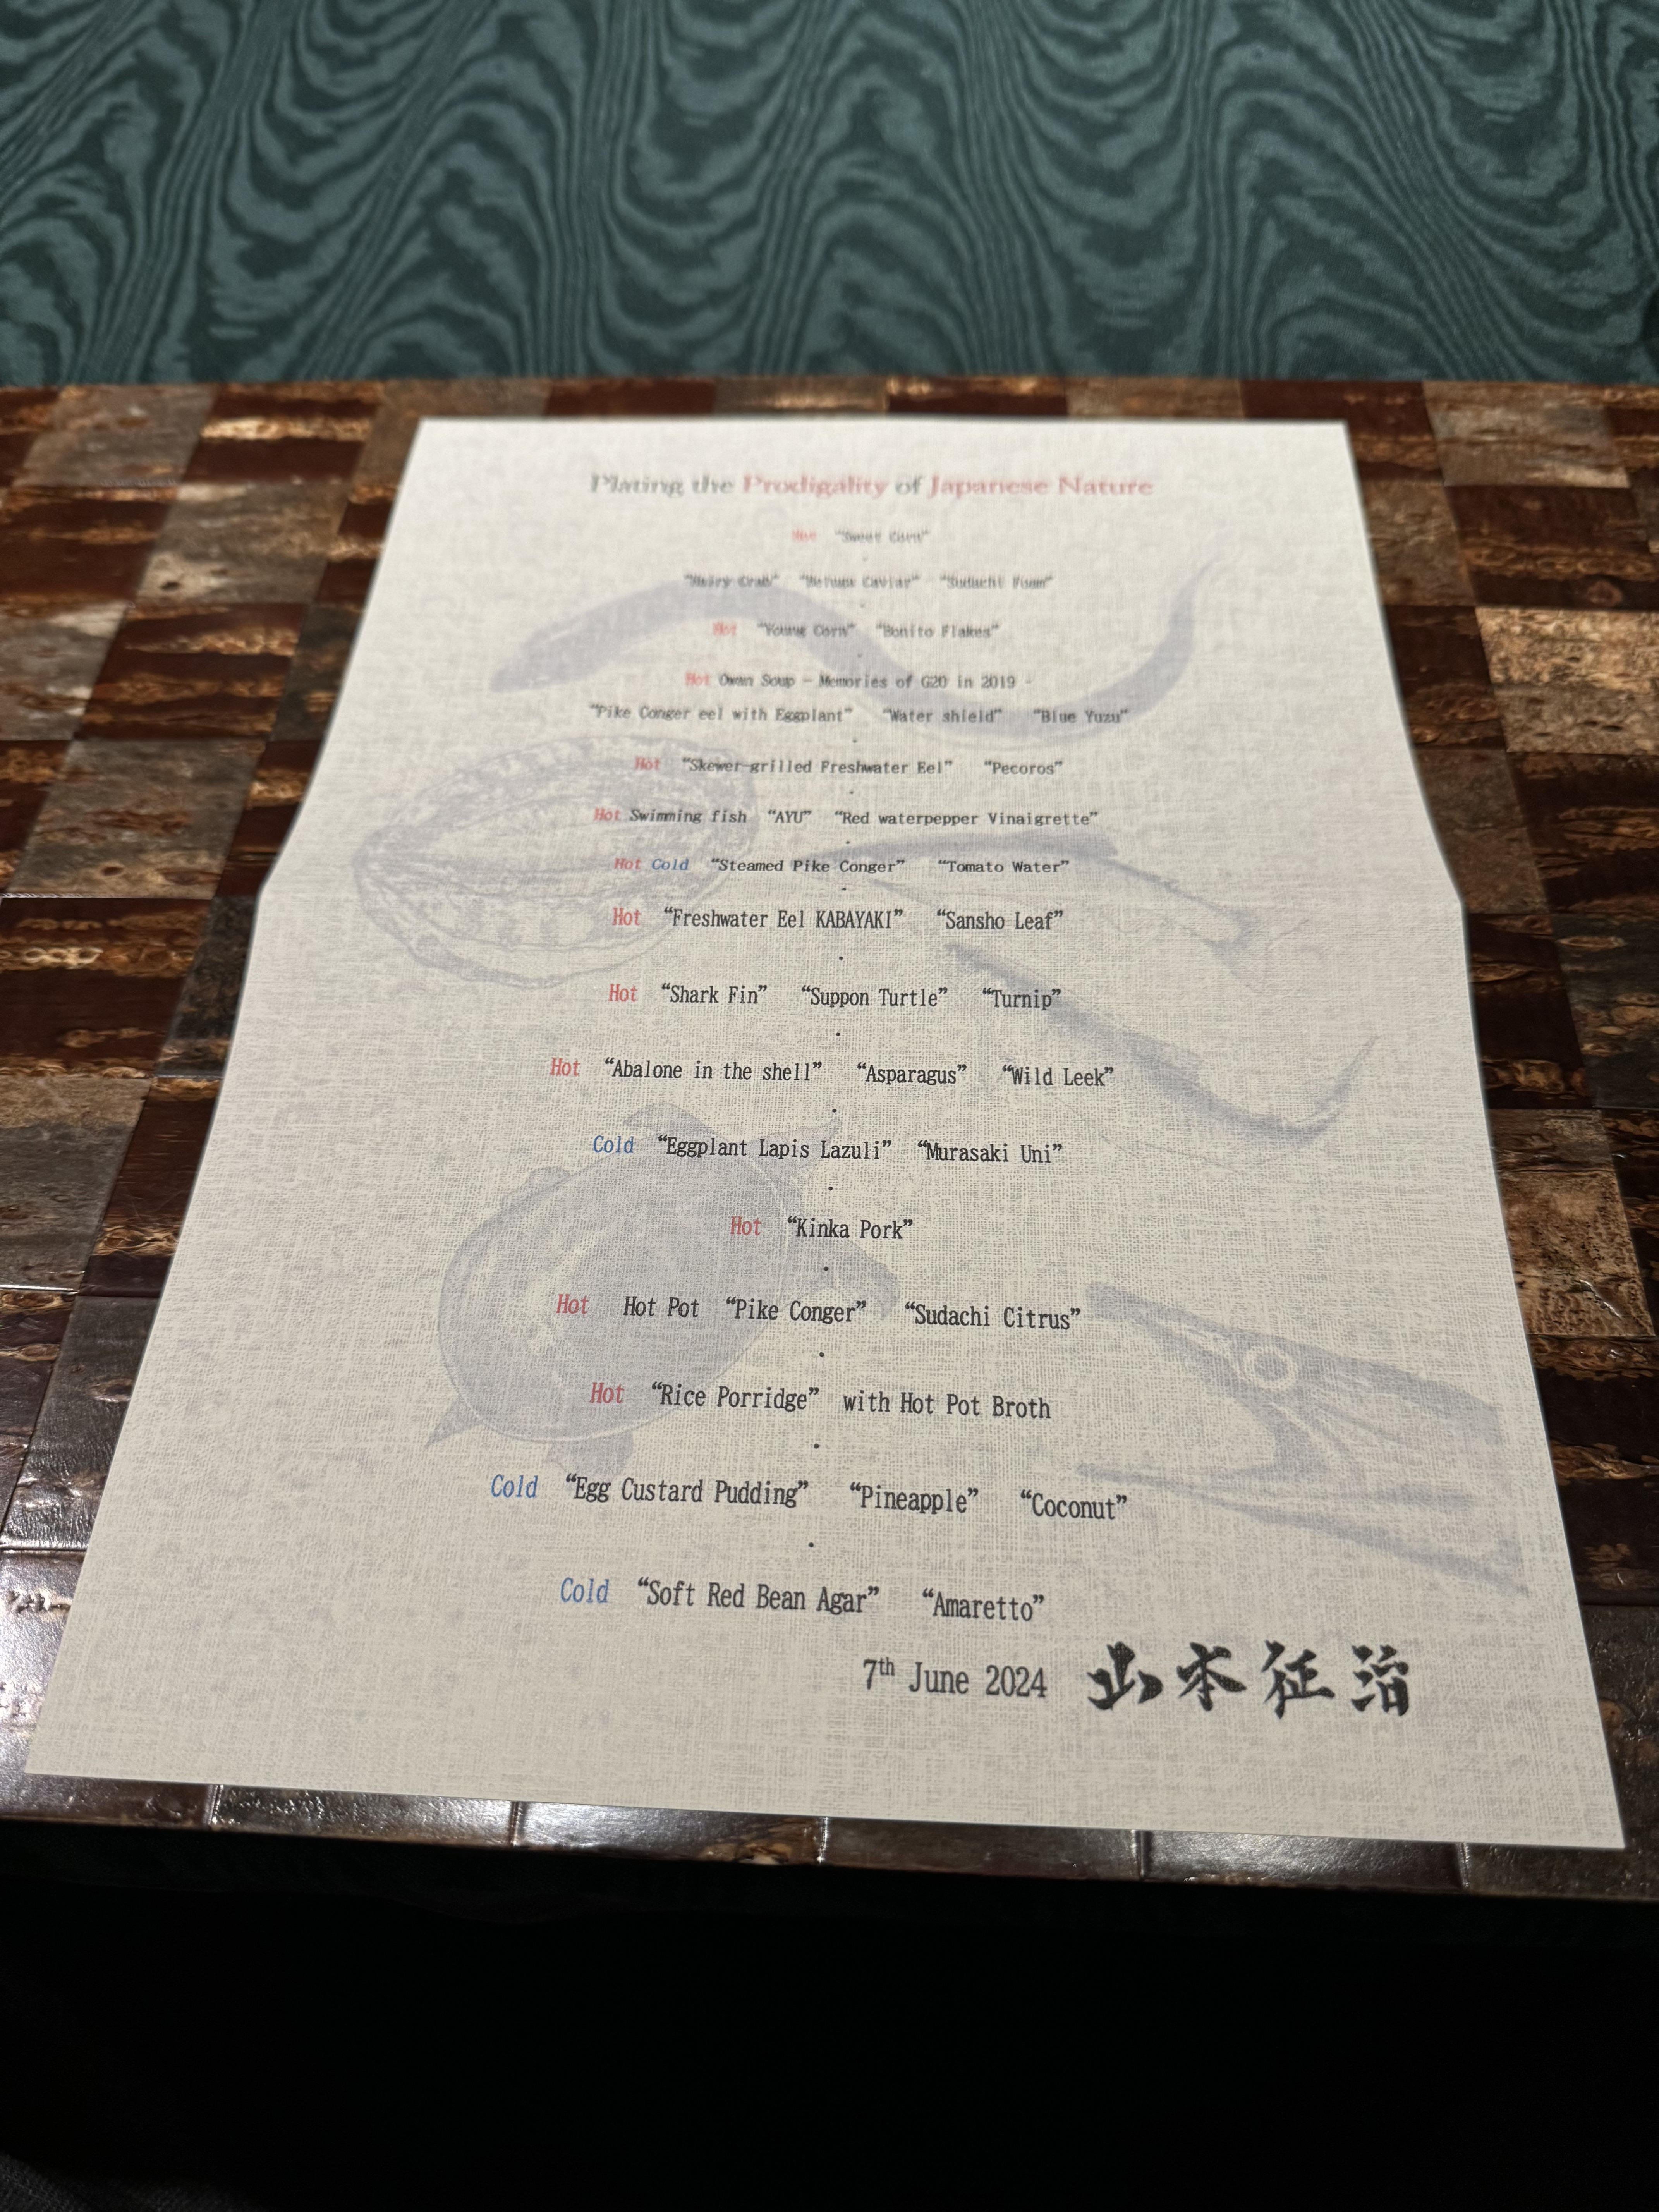 Plating the Prodigality of Japanese Nature
Hot “Sweet Corn”
“Hairy Crab” “Beluga Caviar” “Sudachi Foam”
Hot “Young Corn” “Bonito Flakes”
Hot Owan Soup – Memories of G20 in 2019 -
“Pike Conger eel with Eggplant” “Water shield” “Blue Yuzu”
Hot “Skewer-grilled Freshwater Eel” “Pecoros”
Hot Swimming fish “AYU” “Red waterpepper Vinaigrette”
Hot Cold “Steamed Pike Conger” “Tomato Water”
Hot “Freshwater Eel KABAYAKI” “Sansho Leaf”
Hot “Shark Fin” “Suppon Turtle” “Turnip”
Hot “Abalone in the shell” “Asparagus” “Wild Leek”
Cold “Eggplant Lapis Lazuli” “Murasaki Uni”
Hot “Kinka Pork”
Hot Hot Pot “Pike Conger” “Sudachi Citrus”
Hot “Rice Porridge” with Hot Pot Broth
Cold “Egg Custard Pudding” “Pineapple” “Coconut”
Cold “Soft Red Bean Agar” “Amaretto”
7th June 2024 山本征治